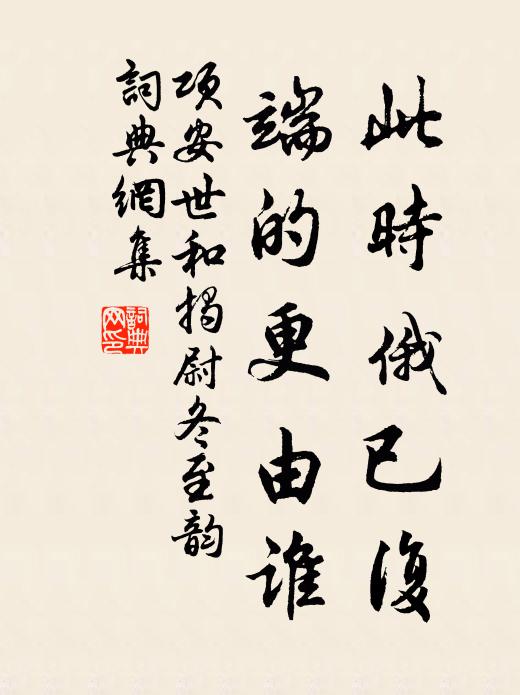 此時俄已復
端的更由誰
項安世和楊尉冬至韵
詞典網集
詞典
网印